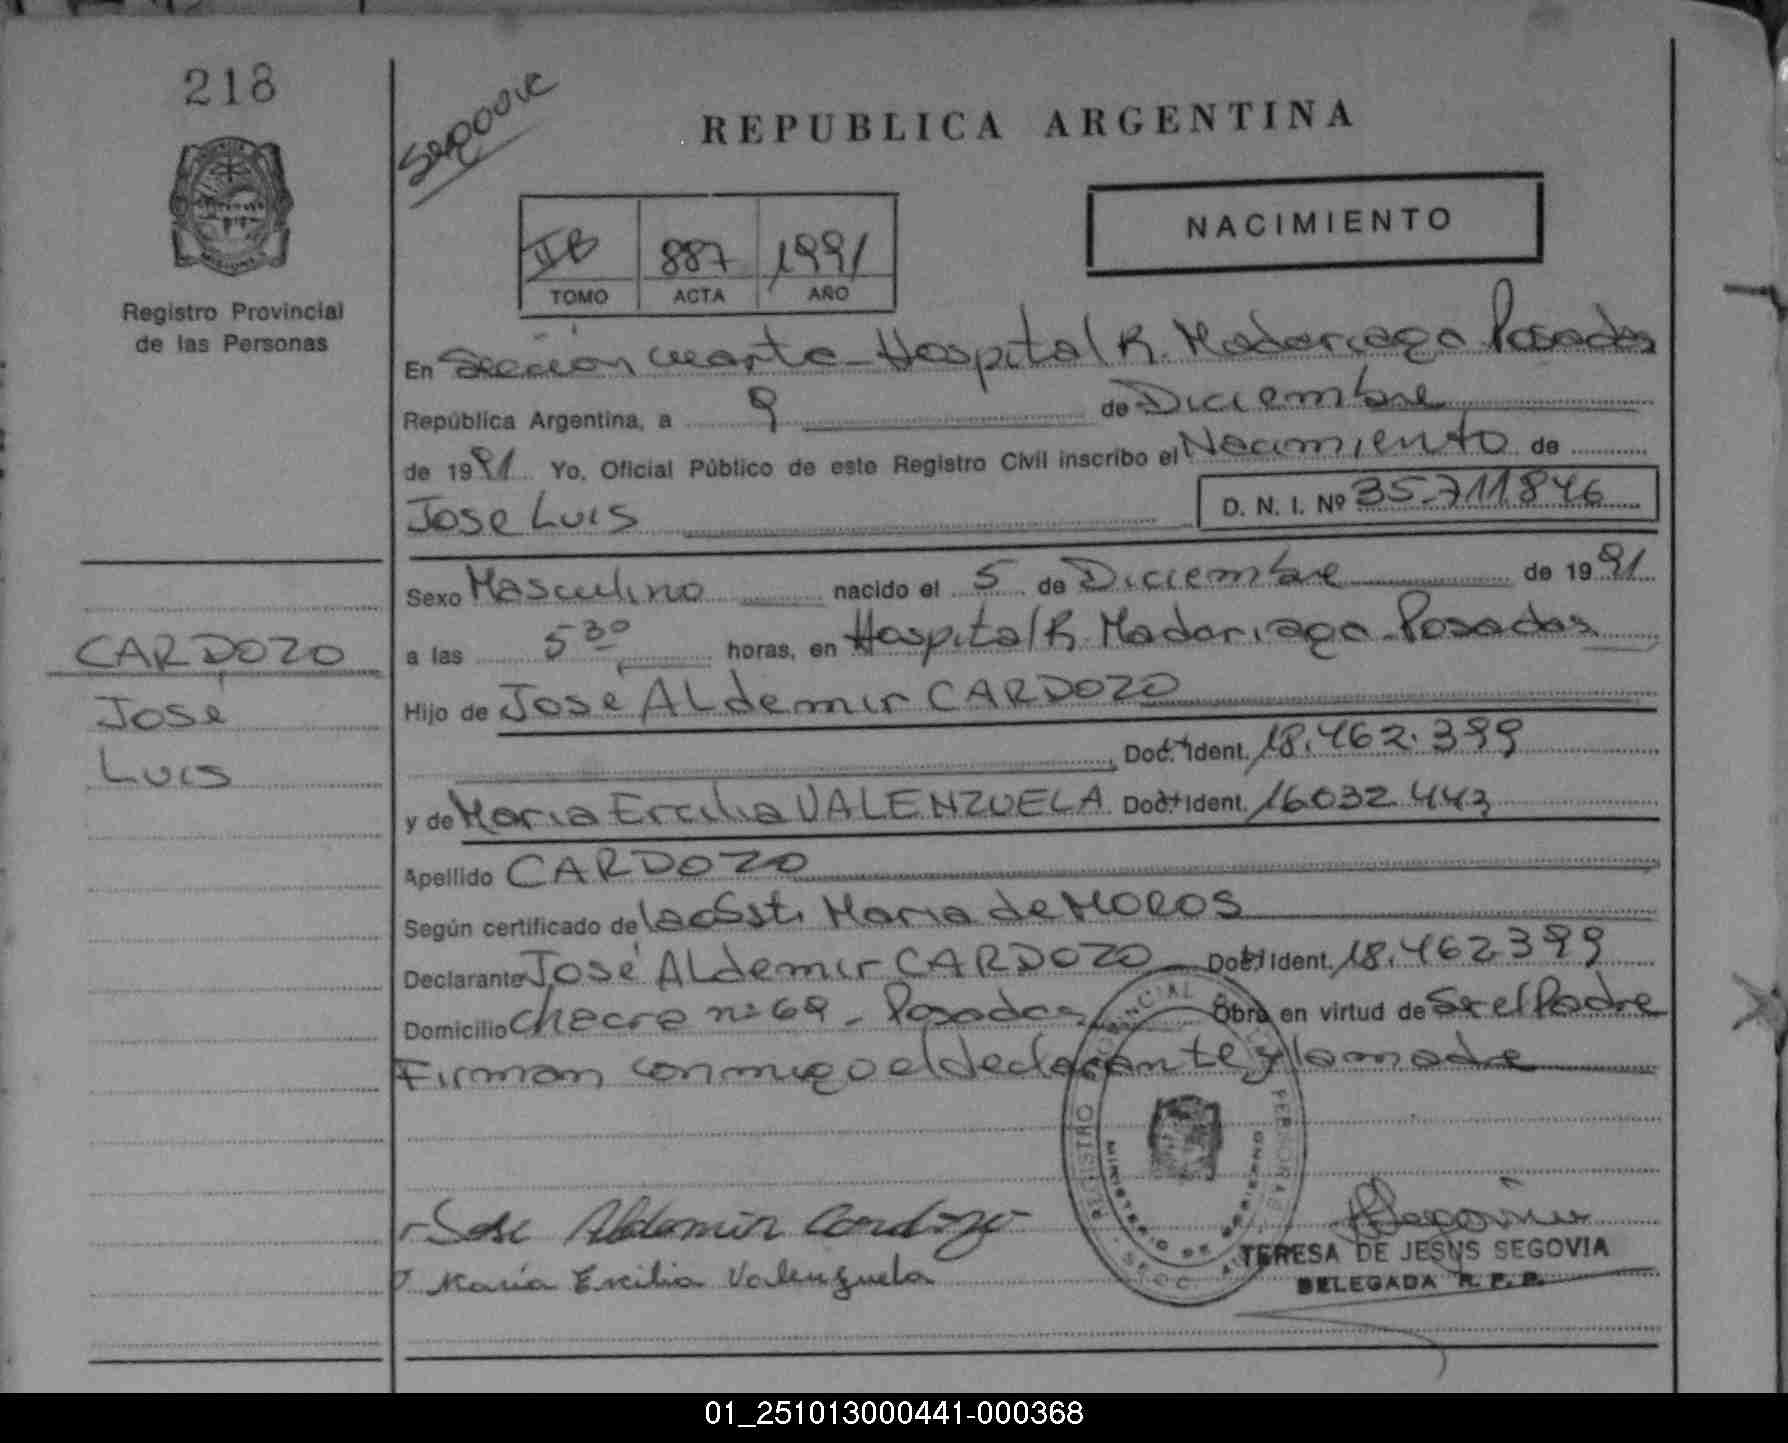 218
REPUBLICA ARGENTINA
NACIMIENTO
IIB 887 1991
TOMO ACTA AÑO
Registro Provincial
de las Personas
En Sección cuarta - Hospital R. Madariaga Posadas
República Argentina, a 9 de Diciembre
de 1991 Yo, Oficial Público de este Registro Civil inscribo el Nacimiento de
Jose Luis D. N. I. Nº 35.711.846
Sexo Masculino nacido el 5 de Diciembre de 1991
a las 5 30 horas, en Hospital R. Madariaga - Posadas
CARDOZO
José
Luis
Hijo de José Aldemir CARDOZO
Doc. Ident. 18.462.399
y de Maria Ercilia VALENZUELA Doc. Ident. 16032443
Apellido CARDOZO
Según certificado de la Obst. Maria de MOROS
Declarante José Aldemir CARDOZO Doc. Ident. 18.462399
Domicilio Chacra nº 69 - Posadas Obra en virtud de Ser el Padre
Firman conmigo el declarante y la madre
REGISTRO PROVINCIAL DE LAS PERSONAS
MINISTERIO DE GOBIERNO
SECC.
Jose Aldemir Cardozo
Maria Ercilia Valenzuela
TERESA DE JESUS SEGOVIA
DELEGADA R. P. P.
01_251013000441-000368